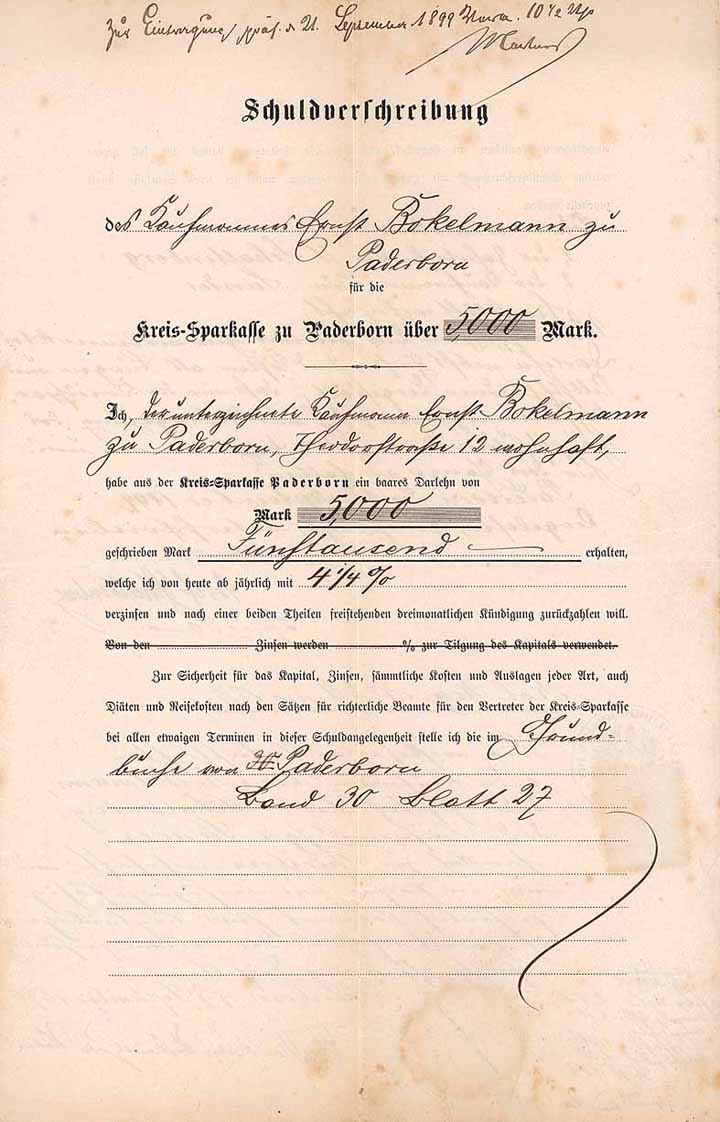 Zur Eintragung präs. d. 21. September 1899 Vorm. 10 1/2 Uhr
Schuldverschreibung
des Kaufmannes Ernst Bokelmann zu
Paderborn
für die
Kreis-Sparkasse zu Paderborn über 5,000 Mark.
Ich, der unterzeichnete Kaufmann Ernst Bokelmann
zu Paderborn, Theodorstraße 12 wohnhaft,
habe aus der Kreis-Sparkasse Paderborn ein baares Darlehn von
Mark 5,000
geschrieben Mark Fünftausend erhalten,
welche ich von heute ab jährlich mit 4 1/4 %
verzinsen und nach einer beiden Theilen freistehenden dreimonatlichen Kündigung zurückzahlen will.
Von den Zinsen werden % zur Tilgung des Kapitals verwendet.
Zur Sicherheit für das Kapital, Zinsen, sämmtliche Kosten und Auslagen jeder Art, auch
Diäten und Reisekosten nach den Sätzen für richterliche Beamte für den Vertreter der Kreis-Sparkasse
bei allen etwaigen Terminen in dieser Schuldangelegenheit stelle ich die im Grund-
buche von Paderborn
Band 30 Blatt 27